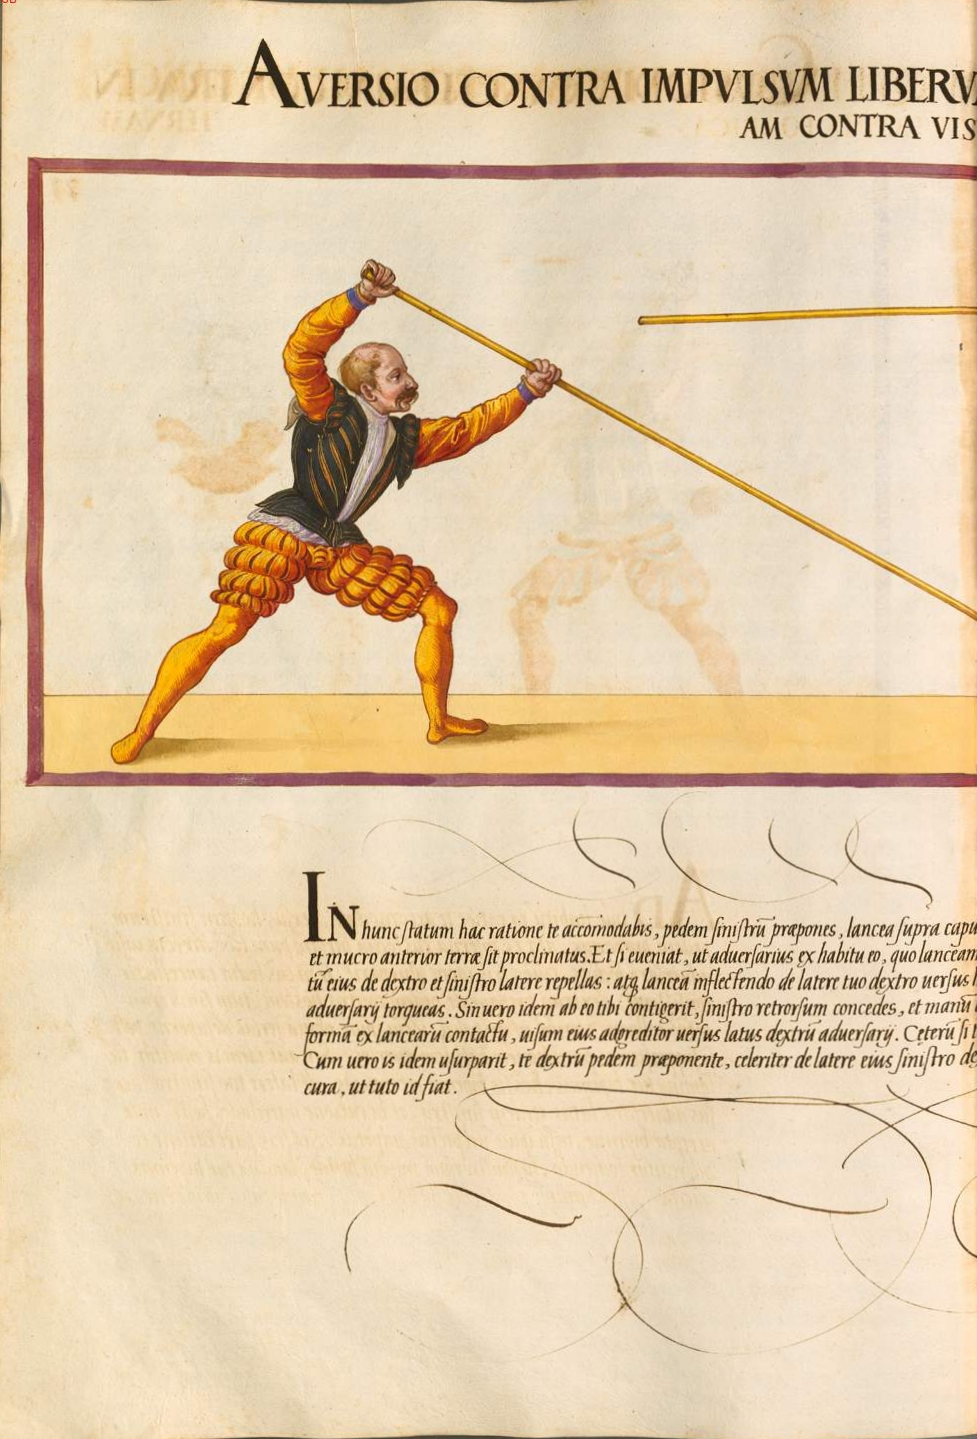 AVERSIO CONTRA IMPVLSVM LIBERV
AM CONTRA VIS
IN hunc statum hac ratione te accomodabis, pedem sinistrū præpones, lancea supra capu
et mucro anterior terræ sit proclinatus. Et si eueniat, ut aduersarius ex habitu eo, quo lanceam
tū eius de dextro et sinistro latere repellas: atq lanceā inflectendo de latere tuo dextro uersus l
aduersarij torqueas. Sin uero idem ab eo tibi contigerit, sinistro retrorsum concedes, et manū
formā ex lancearū contactu, uisum eius adgreditor uersus latus dextrū aduersarij. Ceterū si t
Cum uero is idem usurparit, te dextrū pedem præponente, celeriter de latere eius sinistro de
cura, ut tuto id fiat.